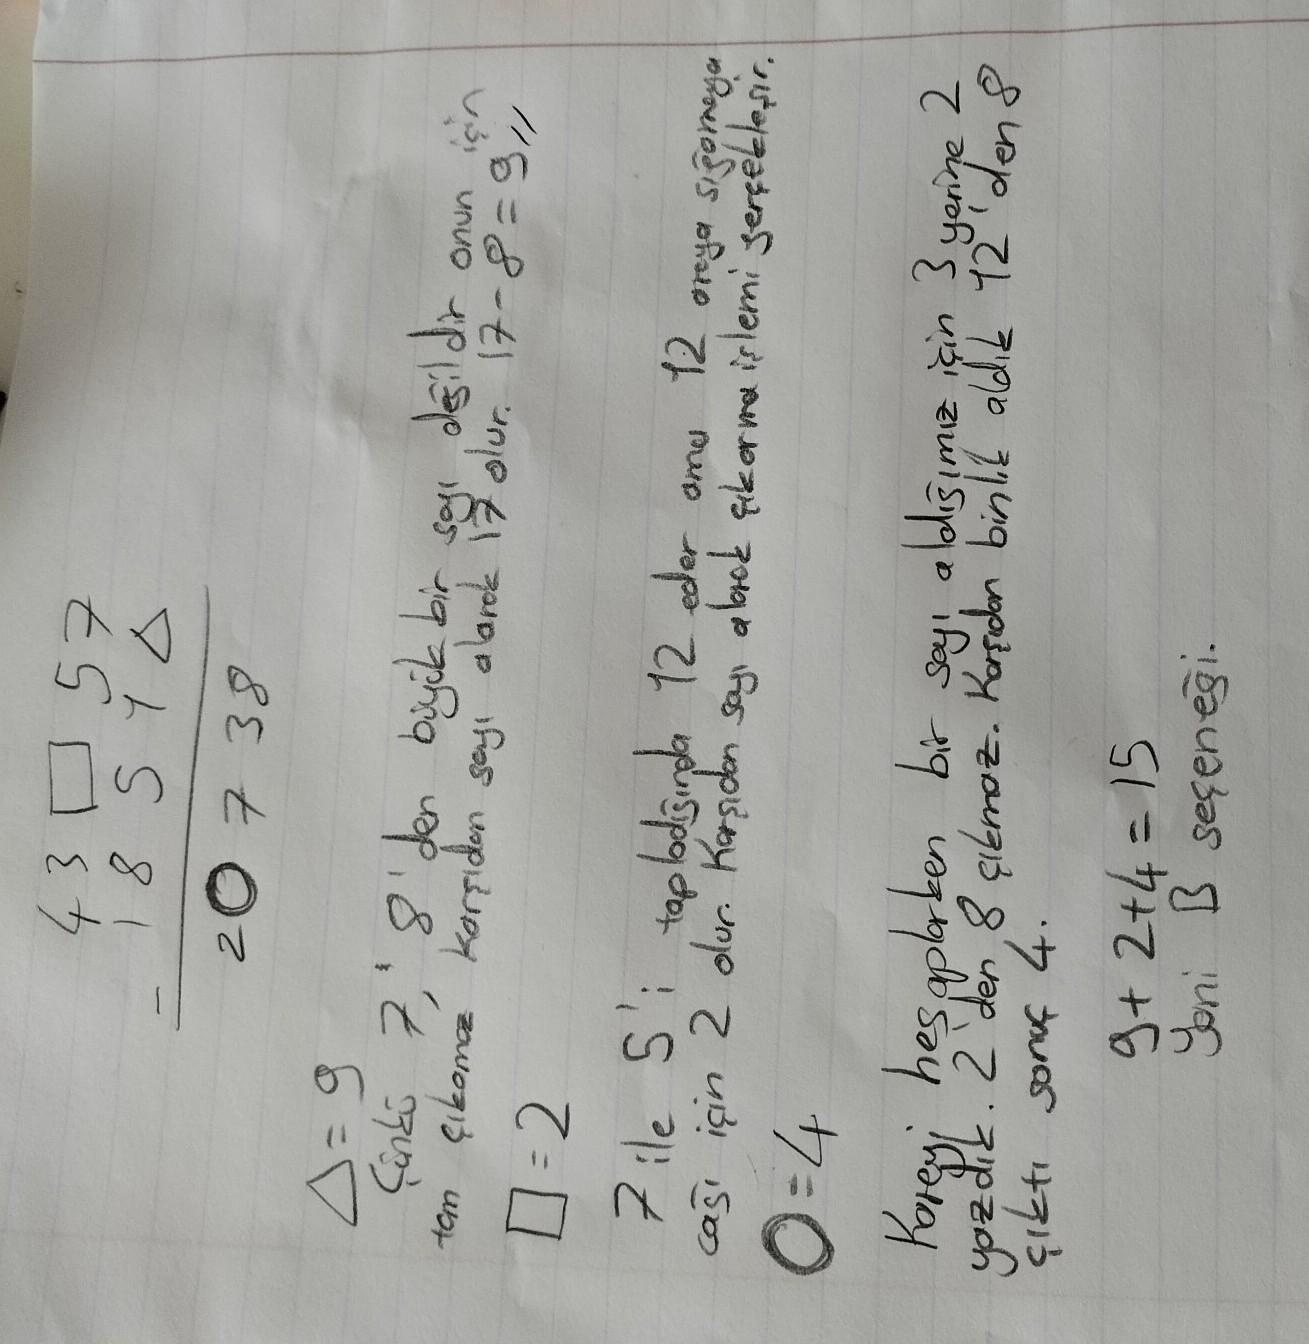 43□57
- 185 1△
20738
△=9
Çünkü 7, 8'den büyük bir sayı değildir onun için
tam çıkamaz karşıdan sayı alarak 17 olur. 17-8=9//
□=2
7 ile 5'i topladığında 12 eder ama 12 oraya sığamaya
cağı için 2 olur. Karşıdan sayı alarak çıkarma işlemi gerçekleşir.
O=4
Kareyi hesaplarken bir sayı aldığımız için 3 yerine 2
yazdık. 2'den 8 çıkmaz. Karşıdan binlik aldık 12'den 8
çıktı sonuç 4.
9+2+4=15
Yani B seçeneği.